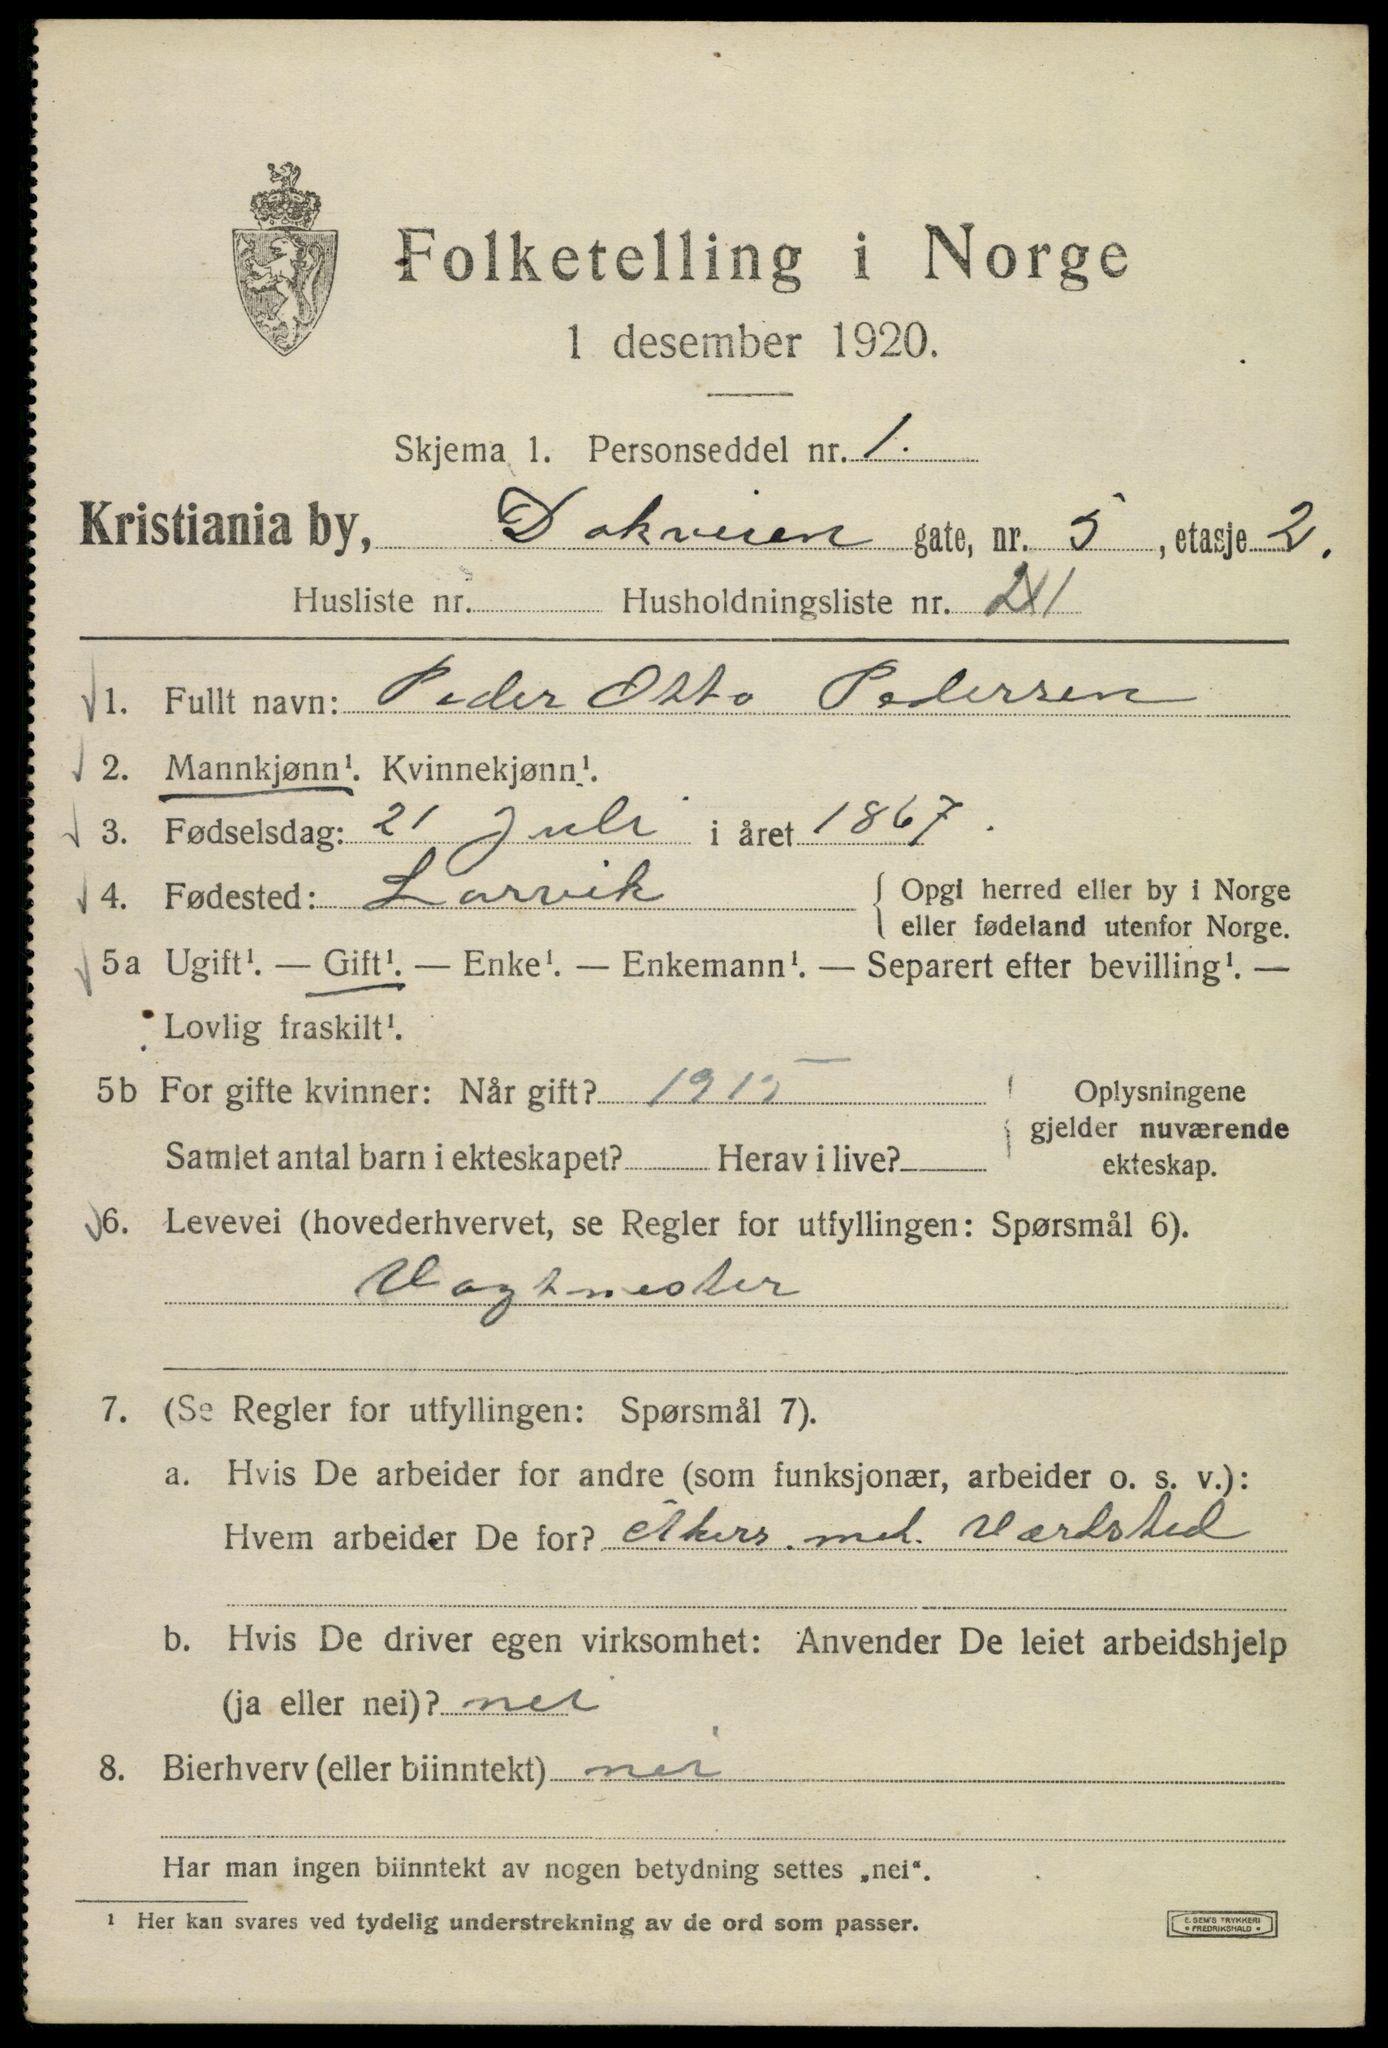 Folketelling i Norge
1 desember 1920.
Skjema 1. Personseddel nr. 1.
Kristiania by, Dokveien gate, nr. 5, etasje 2.
Husliste nr. Husholdningsliste nr.
1. Fullt navn: Peder Otto Pedersen
2. Mannkjønn¹. Kvinnekjønn¹.
3. Fødselsdag: 21 Juli i året 1867.
4. Fødested: Larvik { Opgi herred eller by i Norge
eller fødeland utenfor Norge.
5a Ugift¹. — Gift¹. — Enke¹. — Enkemann¹. — Separert efter bevilling¹. —
Lovlig fraskilt¹.
5b For gifte kvinner: Når gift? 1915 Oplysningene
gjelder nuværende
Samlet antal barn i ekteskapet? Herav i live? ekteskap.
6. Levevei (hovederhvervet, se Regler for utfyllingen: Spørsmål 6).
Vagtmester
7. (Se Regler for utfyllingen: Spørsmål 7).
a. Hvis De arbeider for andre (som funksjonær, arbeider o. s. v.):
Hvem arbeider De for? Akers mek. Værksted
b. Hvis De driver egen virksomhet: Anvender De leiet arbeidshjelp
(ja eller nei)? nei
8. Bierhverv (eller biinntekt) nei
Har man ingen biinntekt av nogen betydning settes „nei“.
¹ Her kan svares ved tydelig understrekning av de ord som passer.
E. SEM'S TRYKKERI
• FREDRIKSHALD •